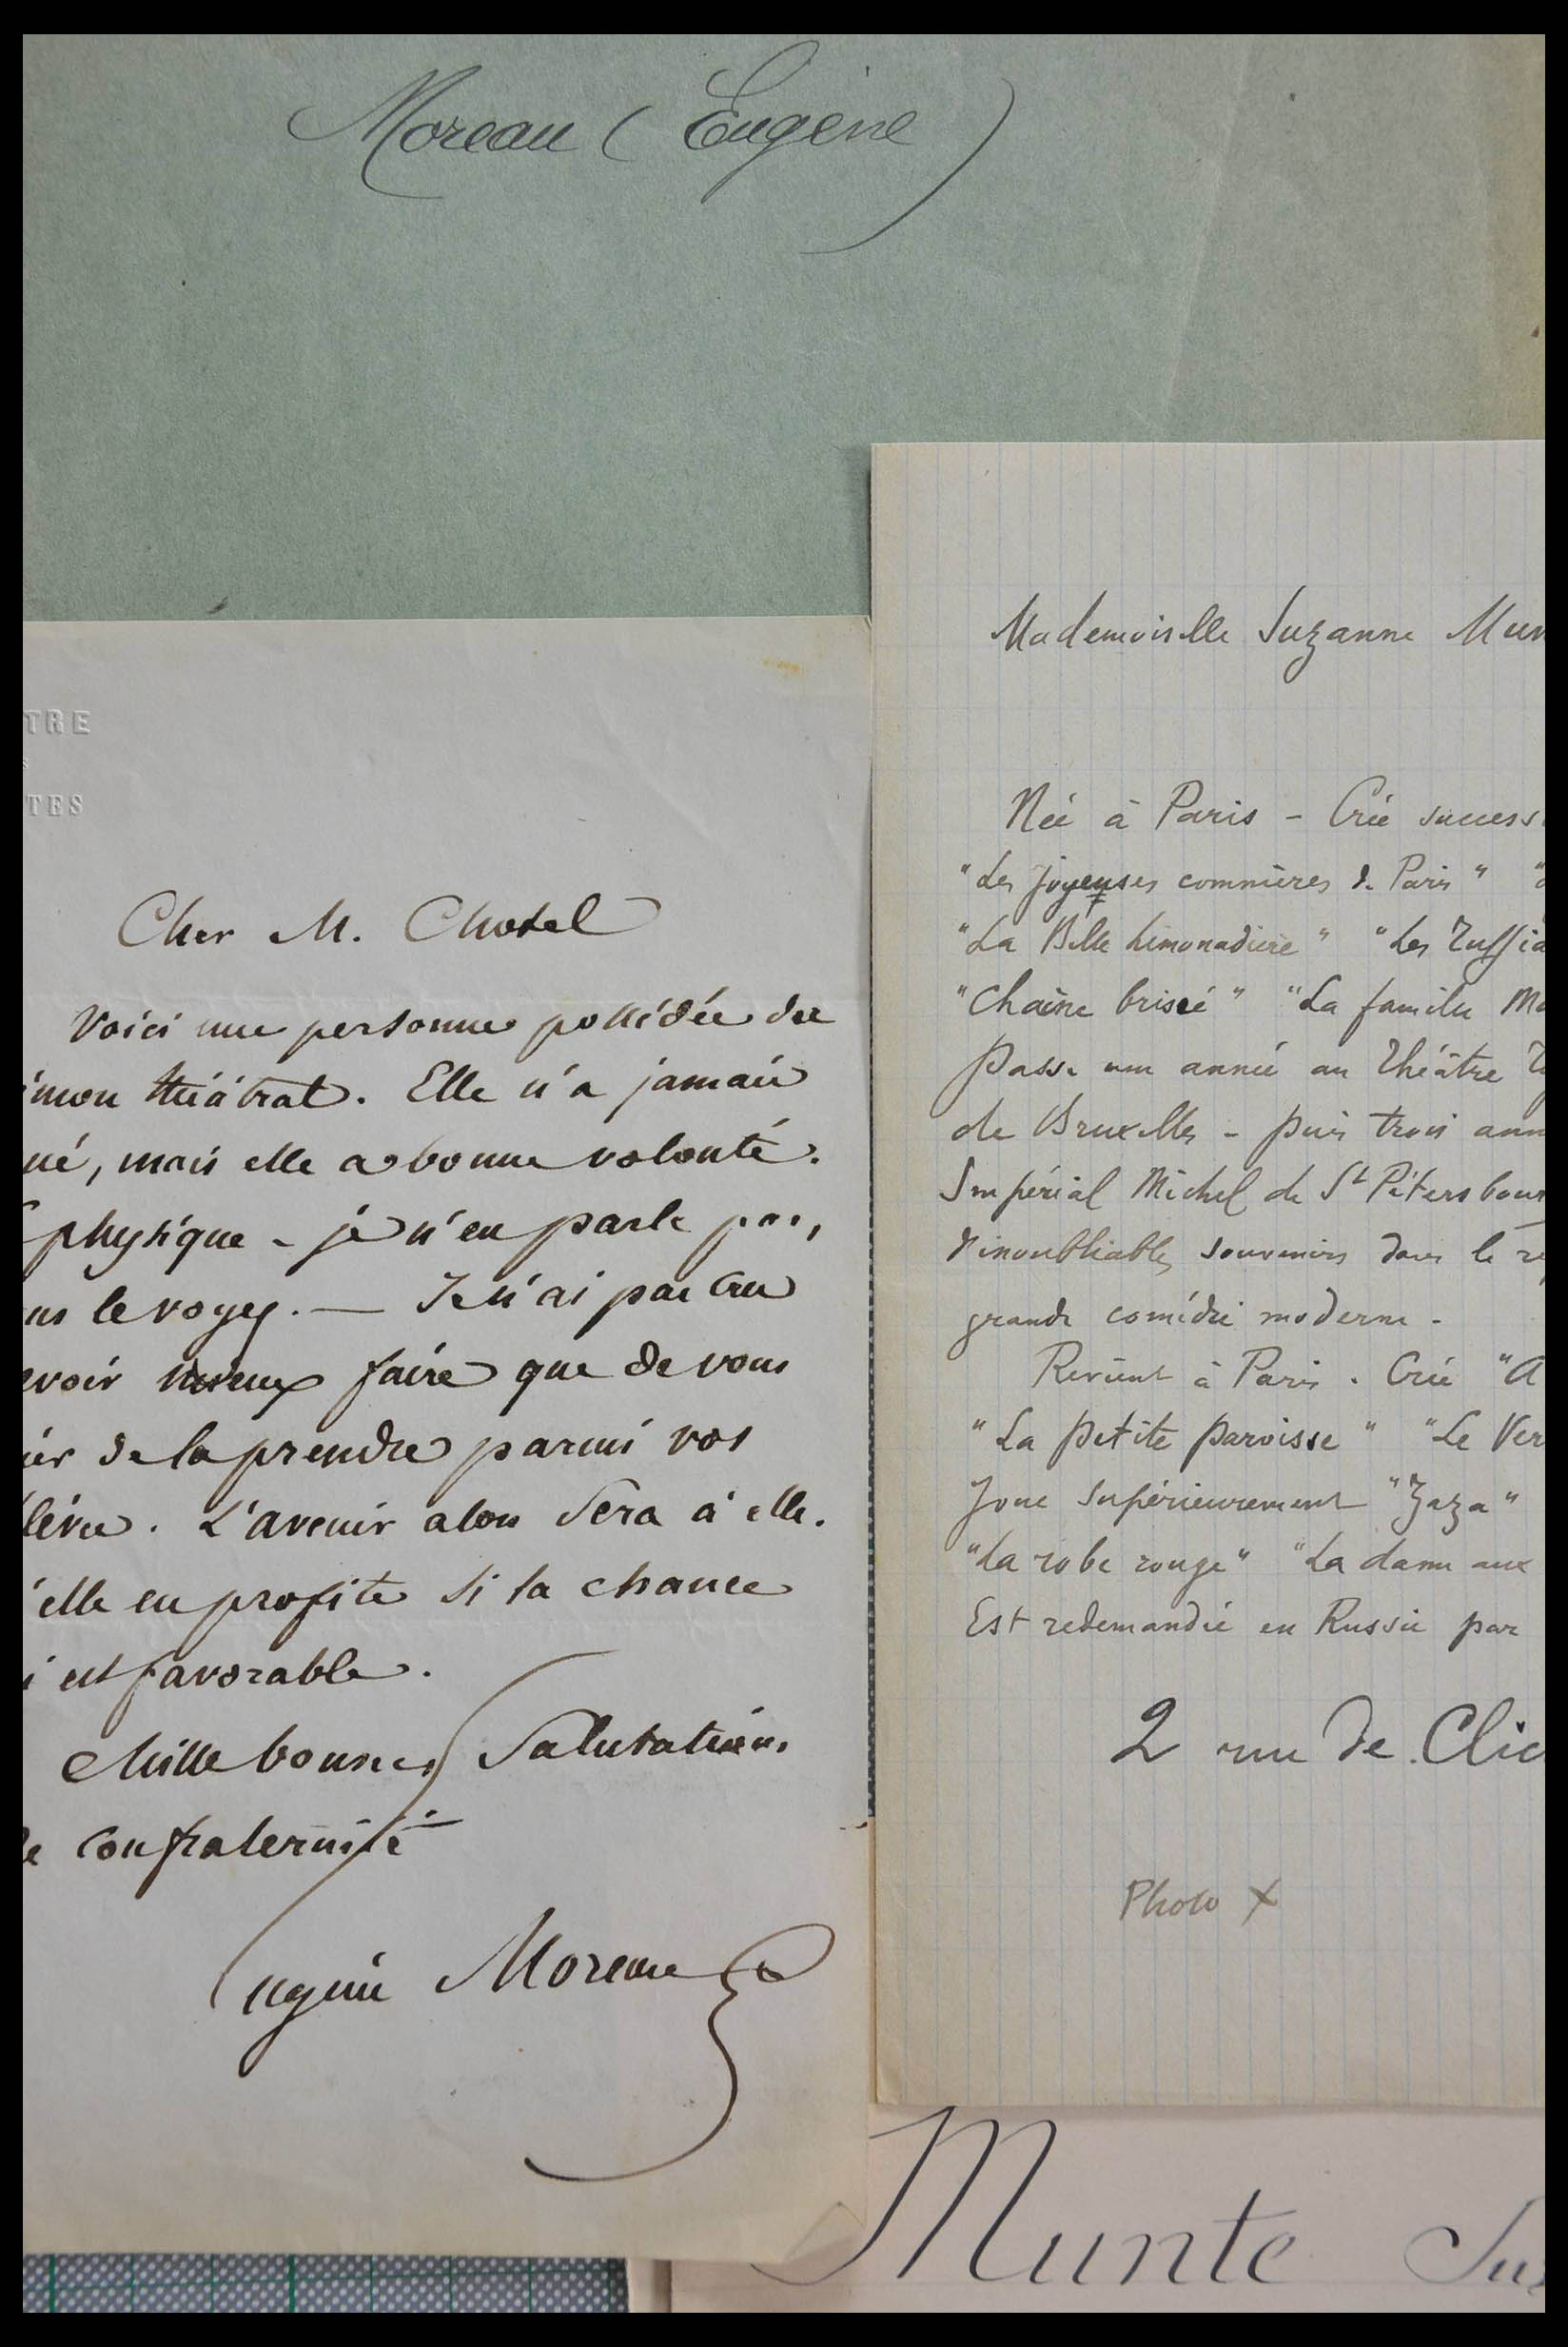 Moreau (Eugène)
TRE
TES
Cher M. Chotel
Voici une personne possédée du
émon théâtral. Elle n'a jamais
ué, mais elle a bonne volonté.
physique - je n'en parle pas,
us le voyez. — Je n'ai pas cru
evoir mieux faire que de vous
ier de la prendre parmi vos
lèves. L'avenir alors sera à elle.
'elle en profite si la chance
i est favorable.
Mille bonnes salutations
de confraternité
Eugène Moreau
Mademoiselle Suzanne Mun
Née à Paris - Crée success
"Les joyeuses commères de Paris"
"La Belle limonadière" "Les Ruffia
"Chaîne brisée" "La famille
Passe une année au théâtre
de Bruxelles - puis trois ann
Impérial Michel de St Pétersbour
d'inoubliables souvenirs dans le
grande comédie moderne -
Revient à Paris. Crée "A
"La petite paroisse" "Le Ver
Joue supérieurement "Zaza"
"La robe rouge" "La dame aux
Est redemandée en Russie par
2 rue de Clic
Photo X
Munte Suz